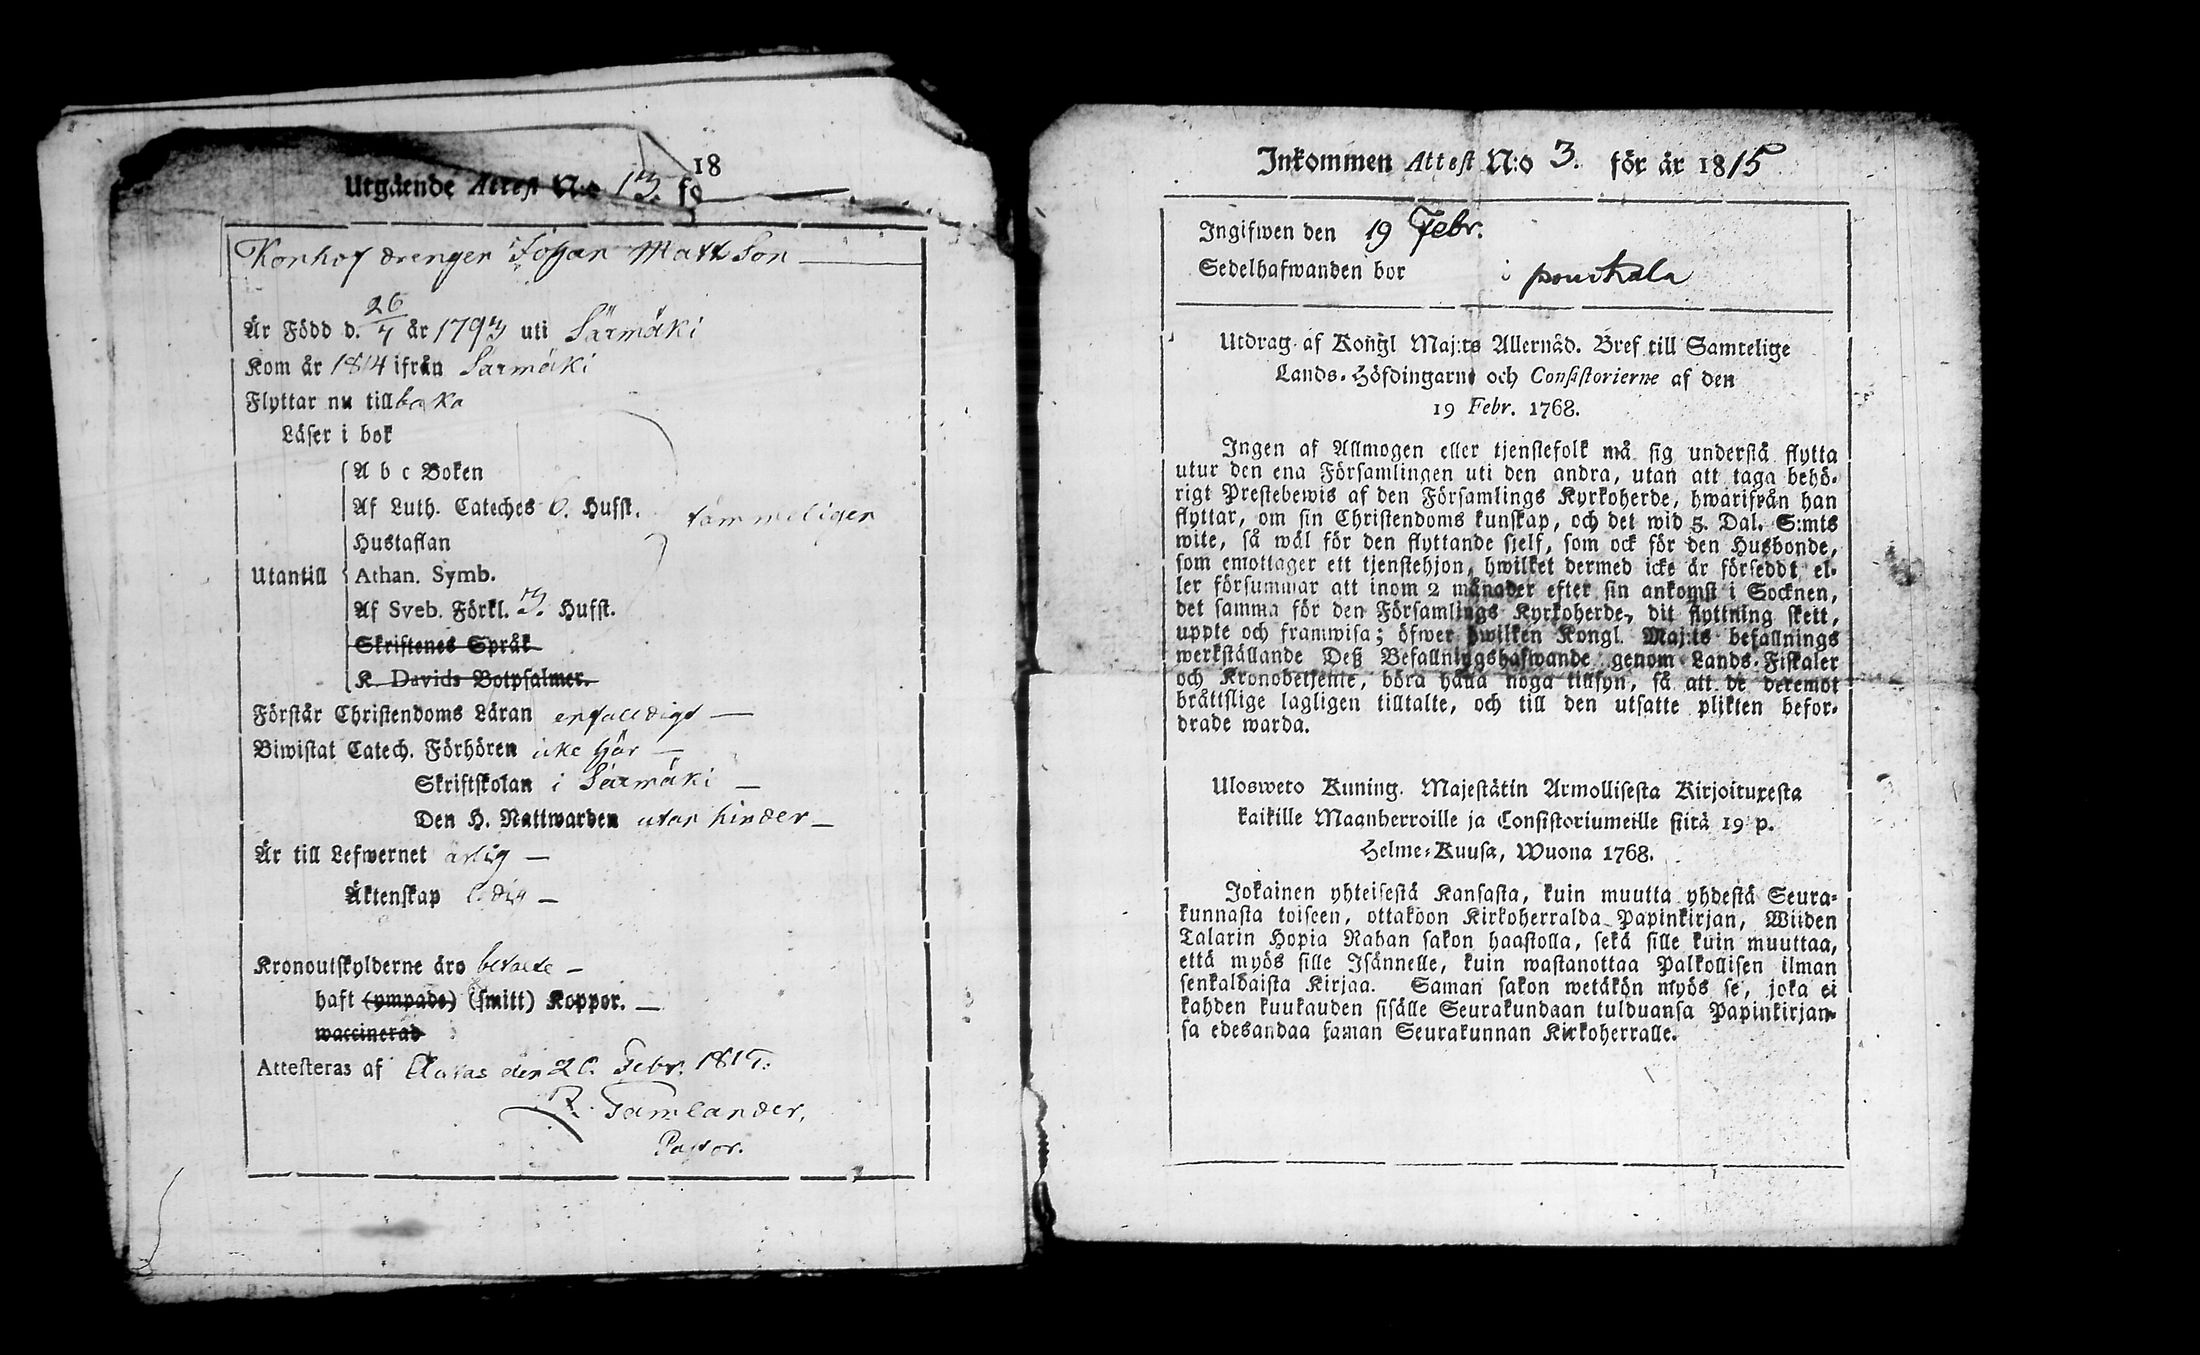 18
Utgående Attest N:o 13. fö
Konhof drengen Johan Mattsson
26
Är Född d. 7 år 1793 uti Särmäki
Kom år 1814 ifrån Särmäki
Flyttar nu tillbaka
Läser i bok
A b c Boken
Af Luth. Cateches 6. Hufst. tämmeligen
Hustaflan
Utantill Athan. Symb.
Af Sveb. Förkl. 3. Hufst.
Skriftenes Språk
K. Davids Botpsalmer.
Förstår Christendoms Läran enfalldigt
Biwistat Catech. Förhören icke här
Skriftskolan i Särmäki
Den H. Nattwarden utan hinder
Är till Lefwernet ärlig
Äktenskap ledig
Kronoutskylderne äro betalte
haft (ympade) (smitt) Koppor.
waccinerad
Attesteras af den 20. Febr. 1815.
Tamlander,
Pastor.
Inkommen Attest N:o 3. för år 1815
Ingifwen den 19 Febr.
Sedelhafwanden bor i
Utdrag af Kongl Maj:ts Allernåd. Bref till Samtelige
Lands-Höfdingarne och Consistorierne af den
19 Febr. 1768.
Ingen af Allmogen eller tjenstefolk må sig understå flytta
utur den ena Församlingen uti den andra, utan att taga behö-
rigt Prestebewis af den Församlings Kyrkoherde, hwarifrån han
flyttar, om sin Christendoms kunskap, och det wid 5. Dal. S:mts
wite, så wäl för den flyttande sjelf, som ock för den Husbonde,
som emottager ett tjenstehjon, hwilket dermed icke är förseddt, el-
ler försummar att inom 2 månader efter sin ankomst i Socknen,
det samma för den Församlings Kyrkoherde, dit flyttning skett,
uppte och framwisa; öfwer hwilken Kongl. Maj:ts befallnings
werkställande Deß Befallningshafwande genom Lands-Fiskaler
och Kronobetjente, böra hålla noga tillsyn, så att de deremot
bråttslige lagligen tilltalte, och till den utsatte plikten befor-
drade warda.
Ulosweto Kuning. Majestätin Armollisesta Kirjoituxesta
kaikille Maanherroille ja Consistoriumeille siitä 19 p.
Helme-Kuusa, Wuona 1768.
Jokainen yhteisestä Kansasta, kuin muutta yhdestä Seura-
kunnasta toiseen, ottakoon Kirkoherralda Papinkirjan, Wiiden
Talarin Hopia Rahan sakon haastolla, sekä sille kuin muuttaa,
että myös sille Isännelle, kuin wastanottaa Palkollisen ilman
senkaldaista Kirjaa. Saman sakon wetäkön myös se, joka ei
kahden kuukauden sisälle Seurakundaan tulduansa Papinkirjan-
sa edesandaa saman Seurakunnan Kirkoherralle.